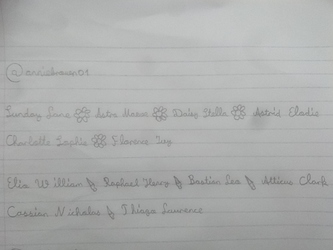 Sunday Lane Astra Maeve Daisy Stella Astrid Elodie
Charlotte Sophie Florence Ivy
Elio William Raphael Henry Bastian Leo Atticus Clark
Cassian Nicholas Thiago Laurence